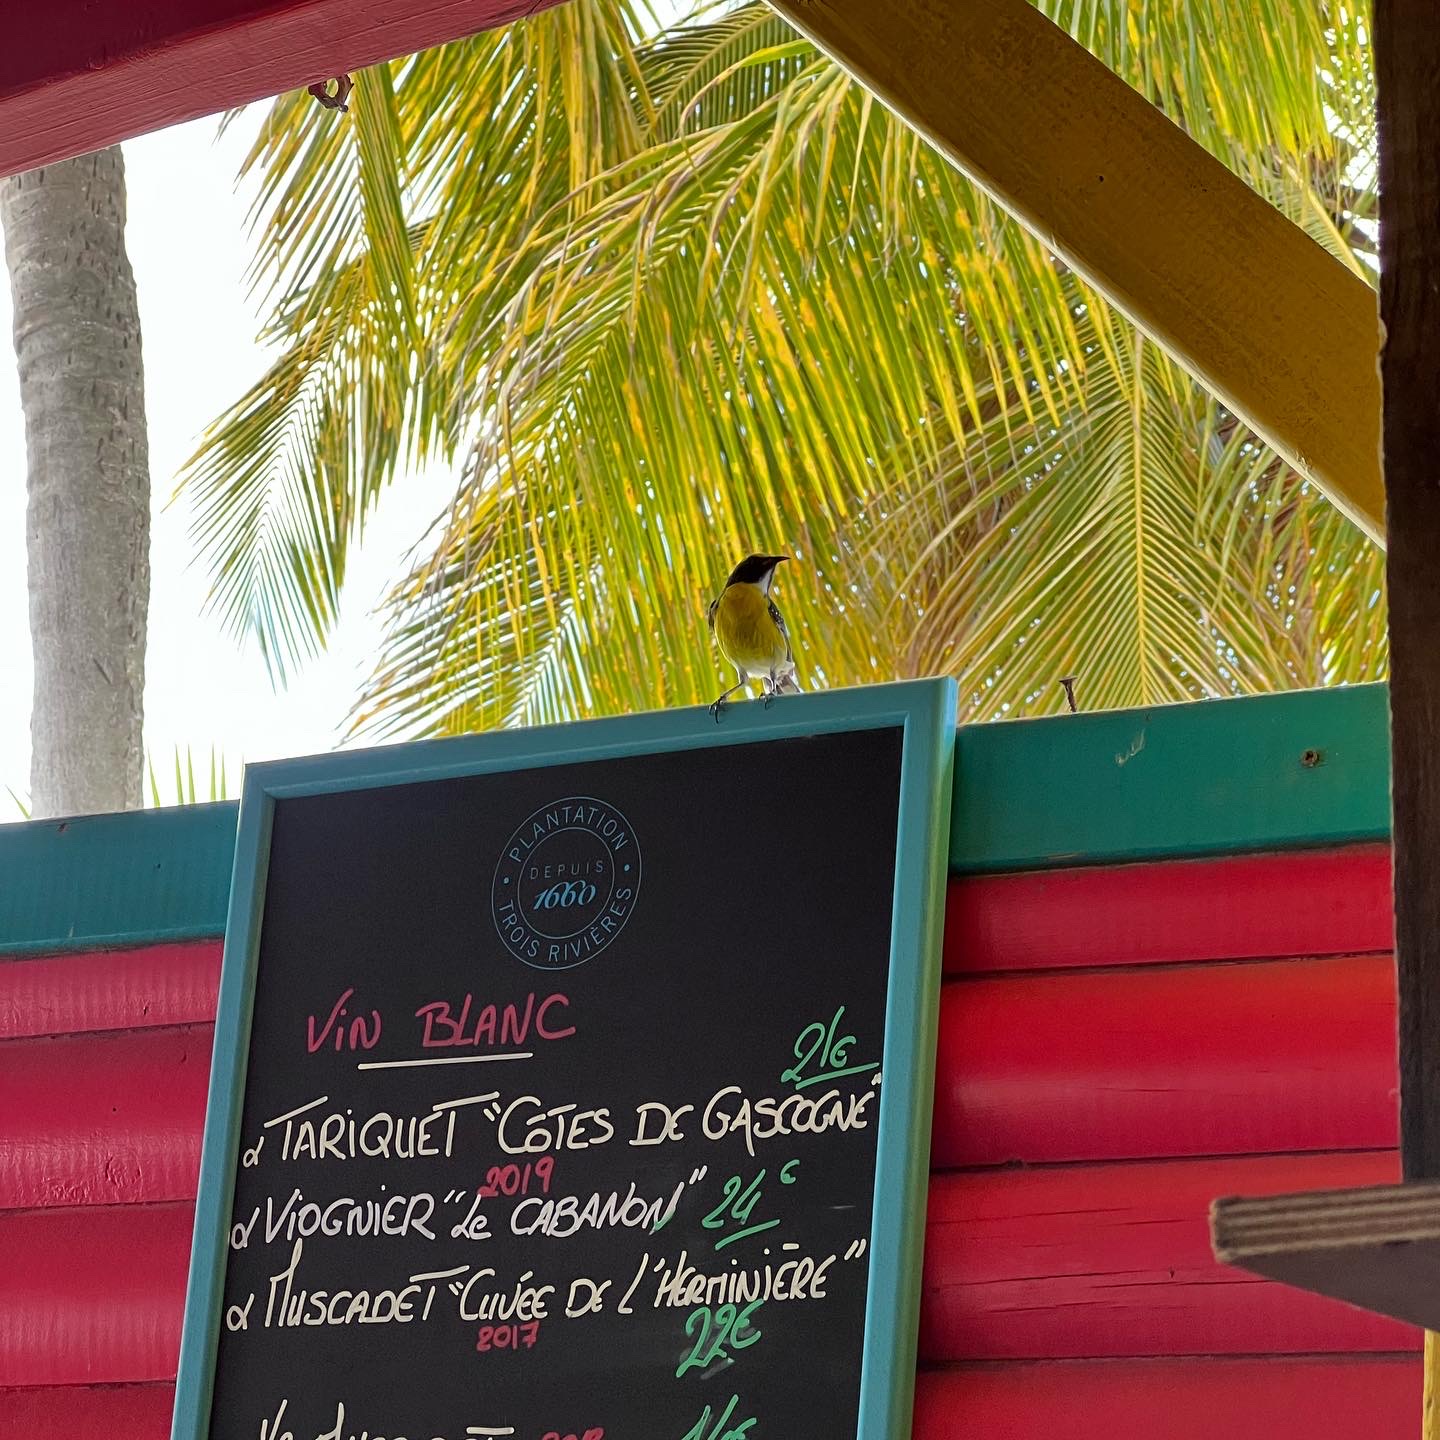 PLANTATION
DEPUIS
1660
TROIS RIVIÈRES
ViN BLANC
21€
TARiQUET "CÔTES DE GASCOGNE"
2019
ViOGNiER "Le CABANON" 24€
MUSCADET "CUVÉE DE L'HERMINIÈRE"
2017
22€